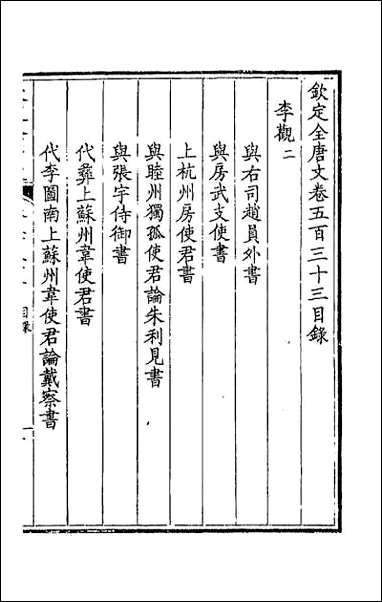 欽定全唐文卷五百三十三目錄
李觀 二
與右司趙員外書
與房武支使書
上杭州房使君書
與睦州獨孤使君論朱利見書
與張宇侍御書
代彝上蘇州韋使君書
代李圖南上蘇州韋使君論戴察書
目錄
一